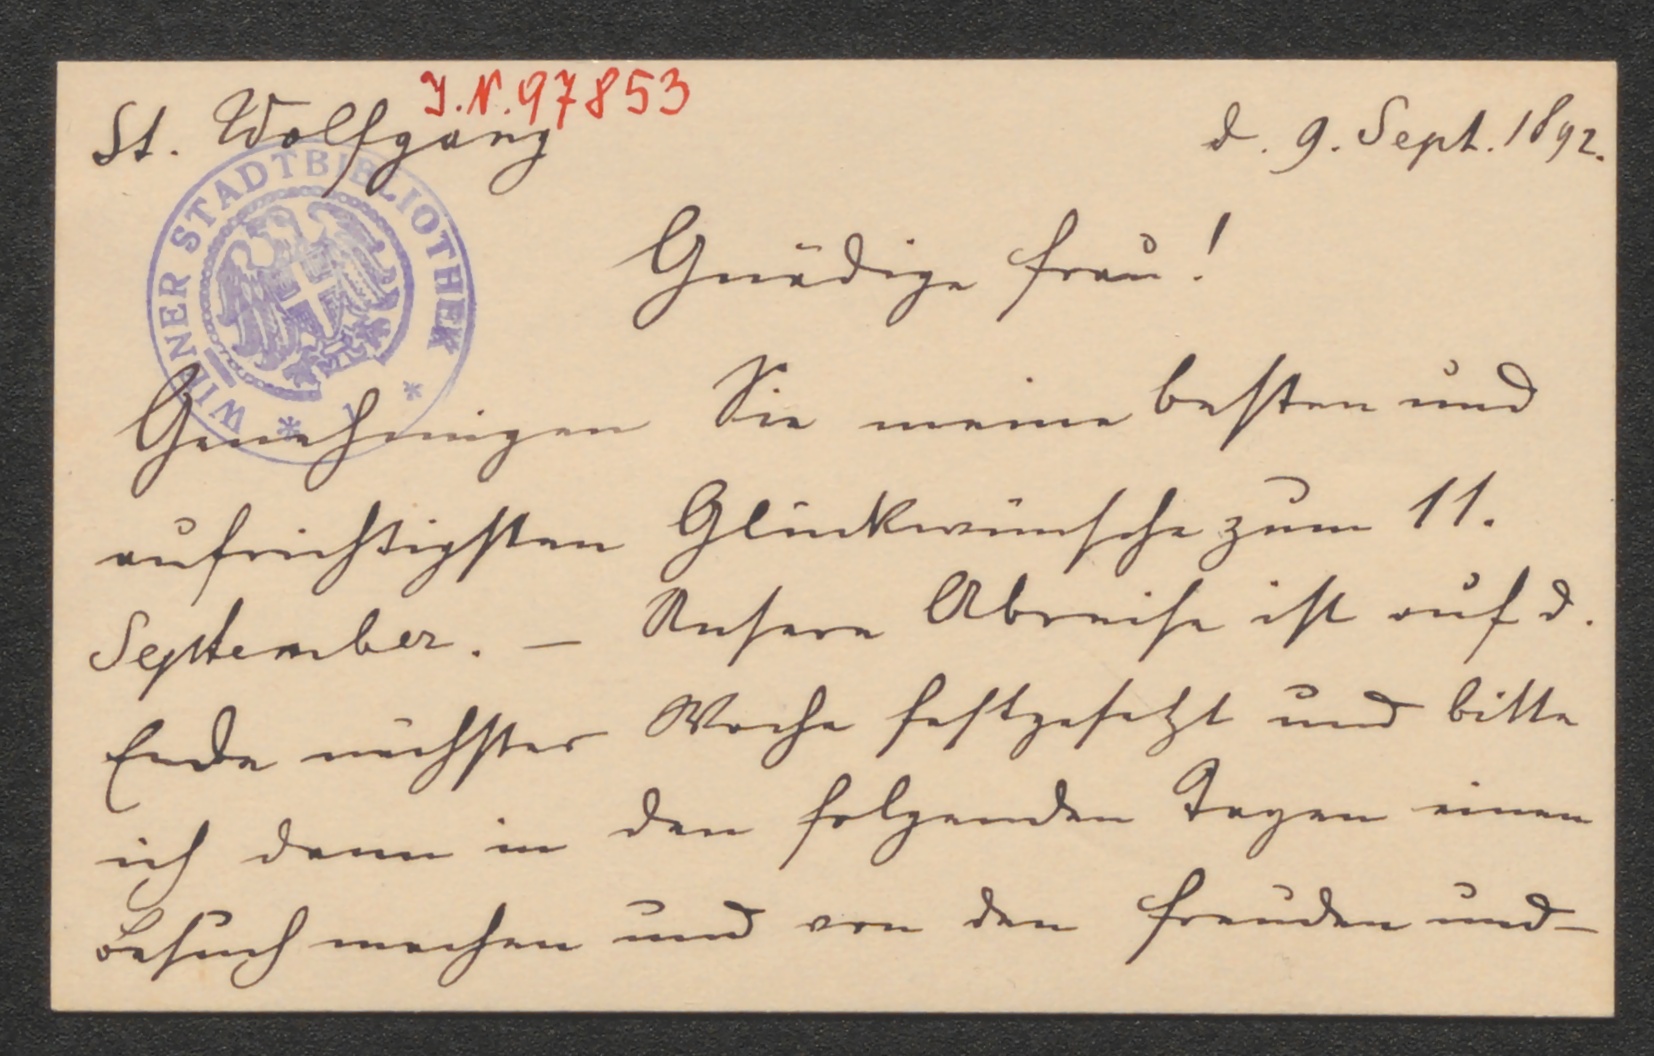 J.N. 97853
St. Wolfgang d. 9. Sept. 1892.
WIENER STADTBIBLIOTHEK
Gnädige Frau!
Genehmigen Sie meine besten und
aufrichtigsten Glückwünsche zum 11.
September. — Unsere Abreise ist auf d.
Ende nächster Woche festgesetzt und bitte
ich dann in den folgenden Tagen einen
Besuch machen und von den Freuden und